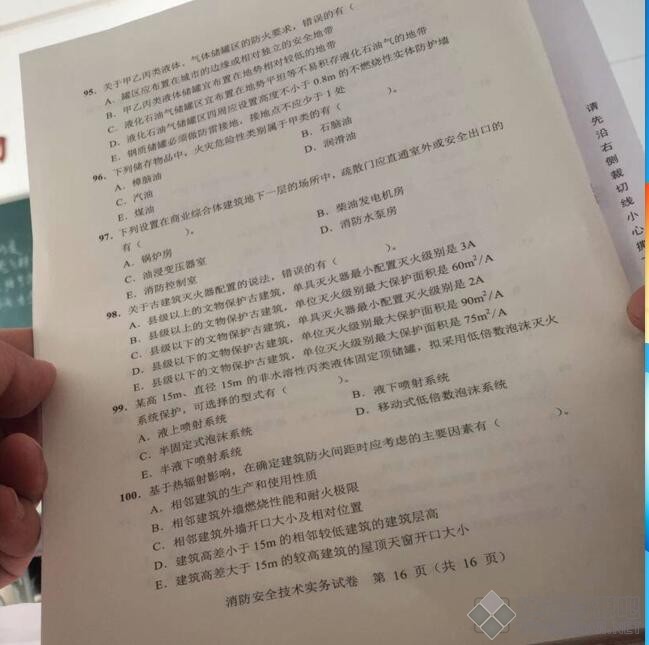 95. 关于甲乙丙类液体、气体储罐区的防火要求，错误的有（
A. 罐区应布置在城市的边缘或相对独立的安全地带
B. 甲乙丙类液体储罐宜布置在地势相对较低的地带
C. 液化石油气储罐区宜布置在地势平坦等不易积存液化石油气的地带
D. 液化石油气储罐区四周应设置高度不小于0.8m的不燃烧性实体防护墙
E. 钢质储罐必须做防雷接地，接地点不应少于1处
96. 下列储存物品中，火灾危险性类别属于甲类的有（ ）。
A. 樟脑油 B. 石脑油
C. 汽油 D. 润滑油
E. 煤油
97. 下列设置在商业综合体建筑地下一层的场所中，疏散门应直通室外或安全出口的
有（ ）。
A. 锅炉房 B. 柴油发电机房
C. 油浸变压器室 D. 消防水泵房
E. 消防控制室
98. 关于古建筑灭火器配置的说法，错误的有（ ）。
A. 县级以上的文物保护古建筑，单具灭火器最小配置灭火级别是3A
B. 县级以上的文物保护古建筑，单位灭火级别最大保护面积是60m²/A
C. 县级以下的文物保护古建筑，单具灭火器最小配置灭火级别是2A
D. 县级以下的文物保护古建筑，单位灭火级别最大保护面积是90m²/A
E. 县级以下的文物保护古建筑，单位灭火级别最大保护面积是75m²/A
99. 某高15m、直径15m的非水溶性丙类液体固定顶储罐，拟采用低倍数泡沫灭火
系统保护，可选择的型式有（ ）。
A. 液上喷射系统 B. 液下喷射系统
C. 半固定式泡沫系统 D. 移动式低倍数泡沫系统
E. 半液下喷射系统
100. 基于热辐射影响，在确定建筑防火间距时应考虑的主要因素有（ ）。
A. 相邻建筑的生产和使用性质
B. 相邻建筑外墙燃烧性能和耐火极限
C. 相邻建筑外墙开口大小及相对位置
D. 建筑高差小于15m的相邻较低建筑的建筑层高
E. 建筑高差大于15m的较高建筑的屋顶天窗开口大小
消防安全技术实务试卷 第 16 页（共 16 页）
请先沿右侧裁切线小心撕